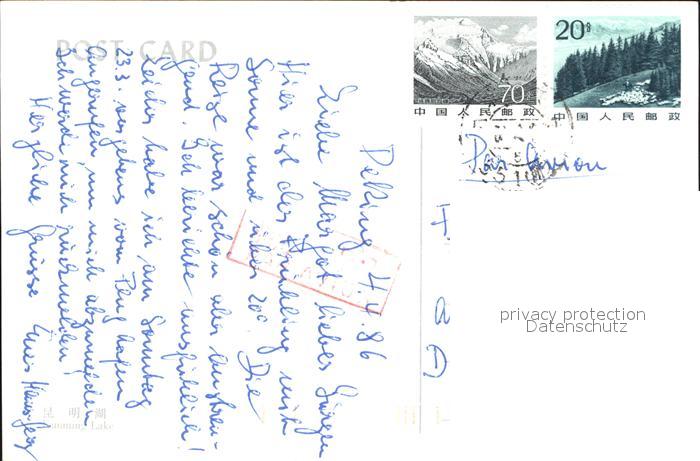 POST CARD
70
中国人民邮政
20分
中国人民邮政
Par Avion
Peking 4.4.86
Liebe Margot lieber Jürgen
Hier ist der Frühling mit
Sonne und über 20° Die
Reise war schön aber anstren-
gend. Ich berichte ausführlich!
Leider habe ich am Sonntag
23.3. vergebens vom Flughafen
angerufen, um mich abzumelden
Ich werde mich zurückmelden!
Herzliche Grüsse Euer
privacy protection
Datenschutz
昆明湖
Kunming Lake